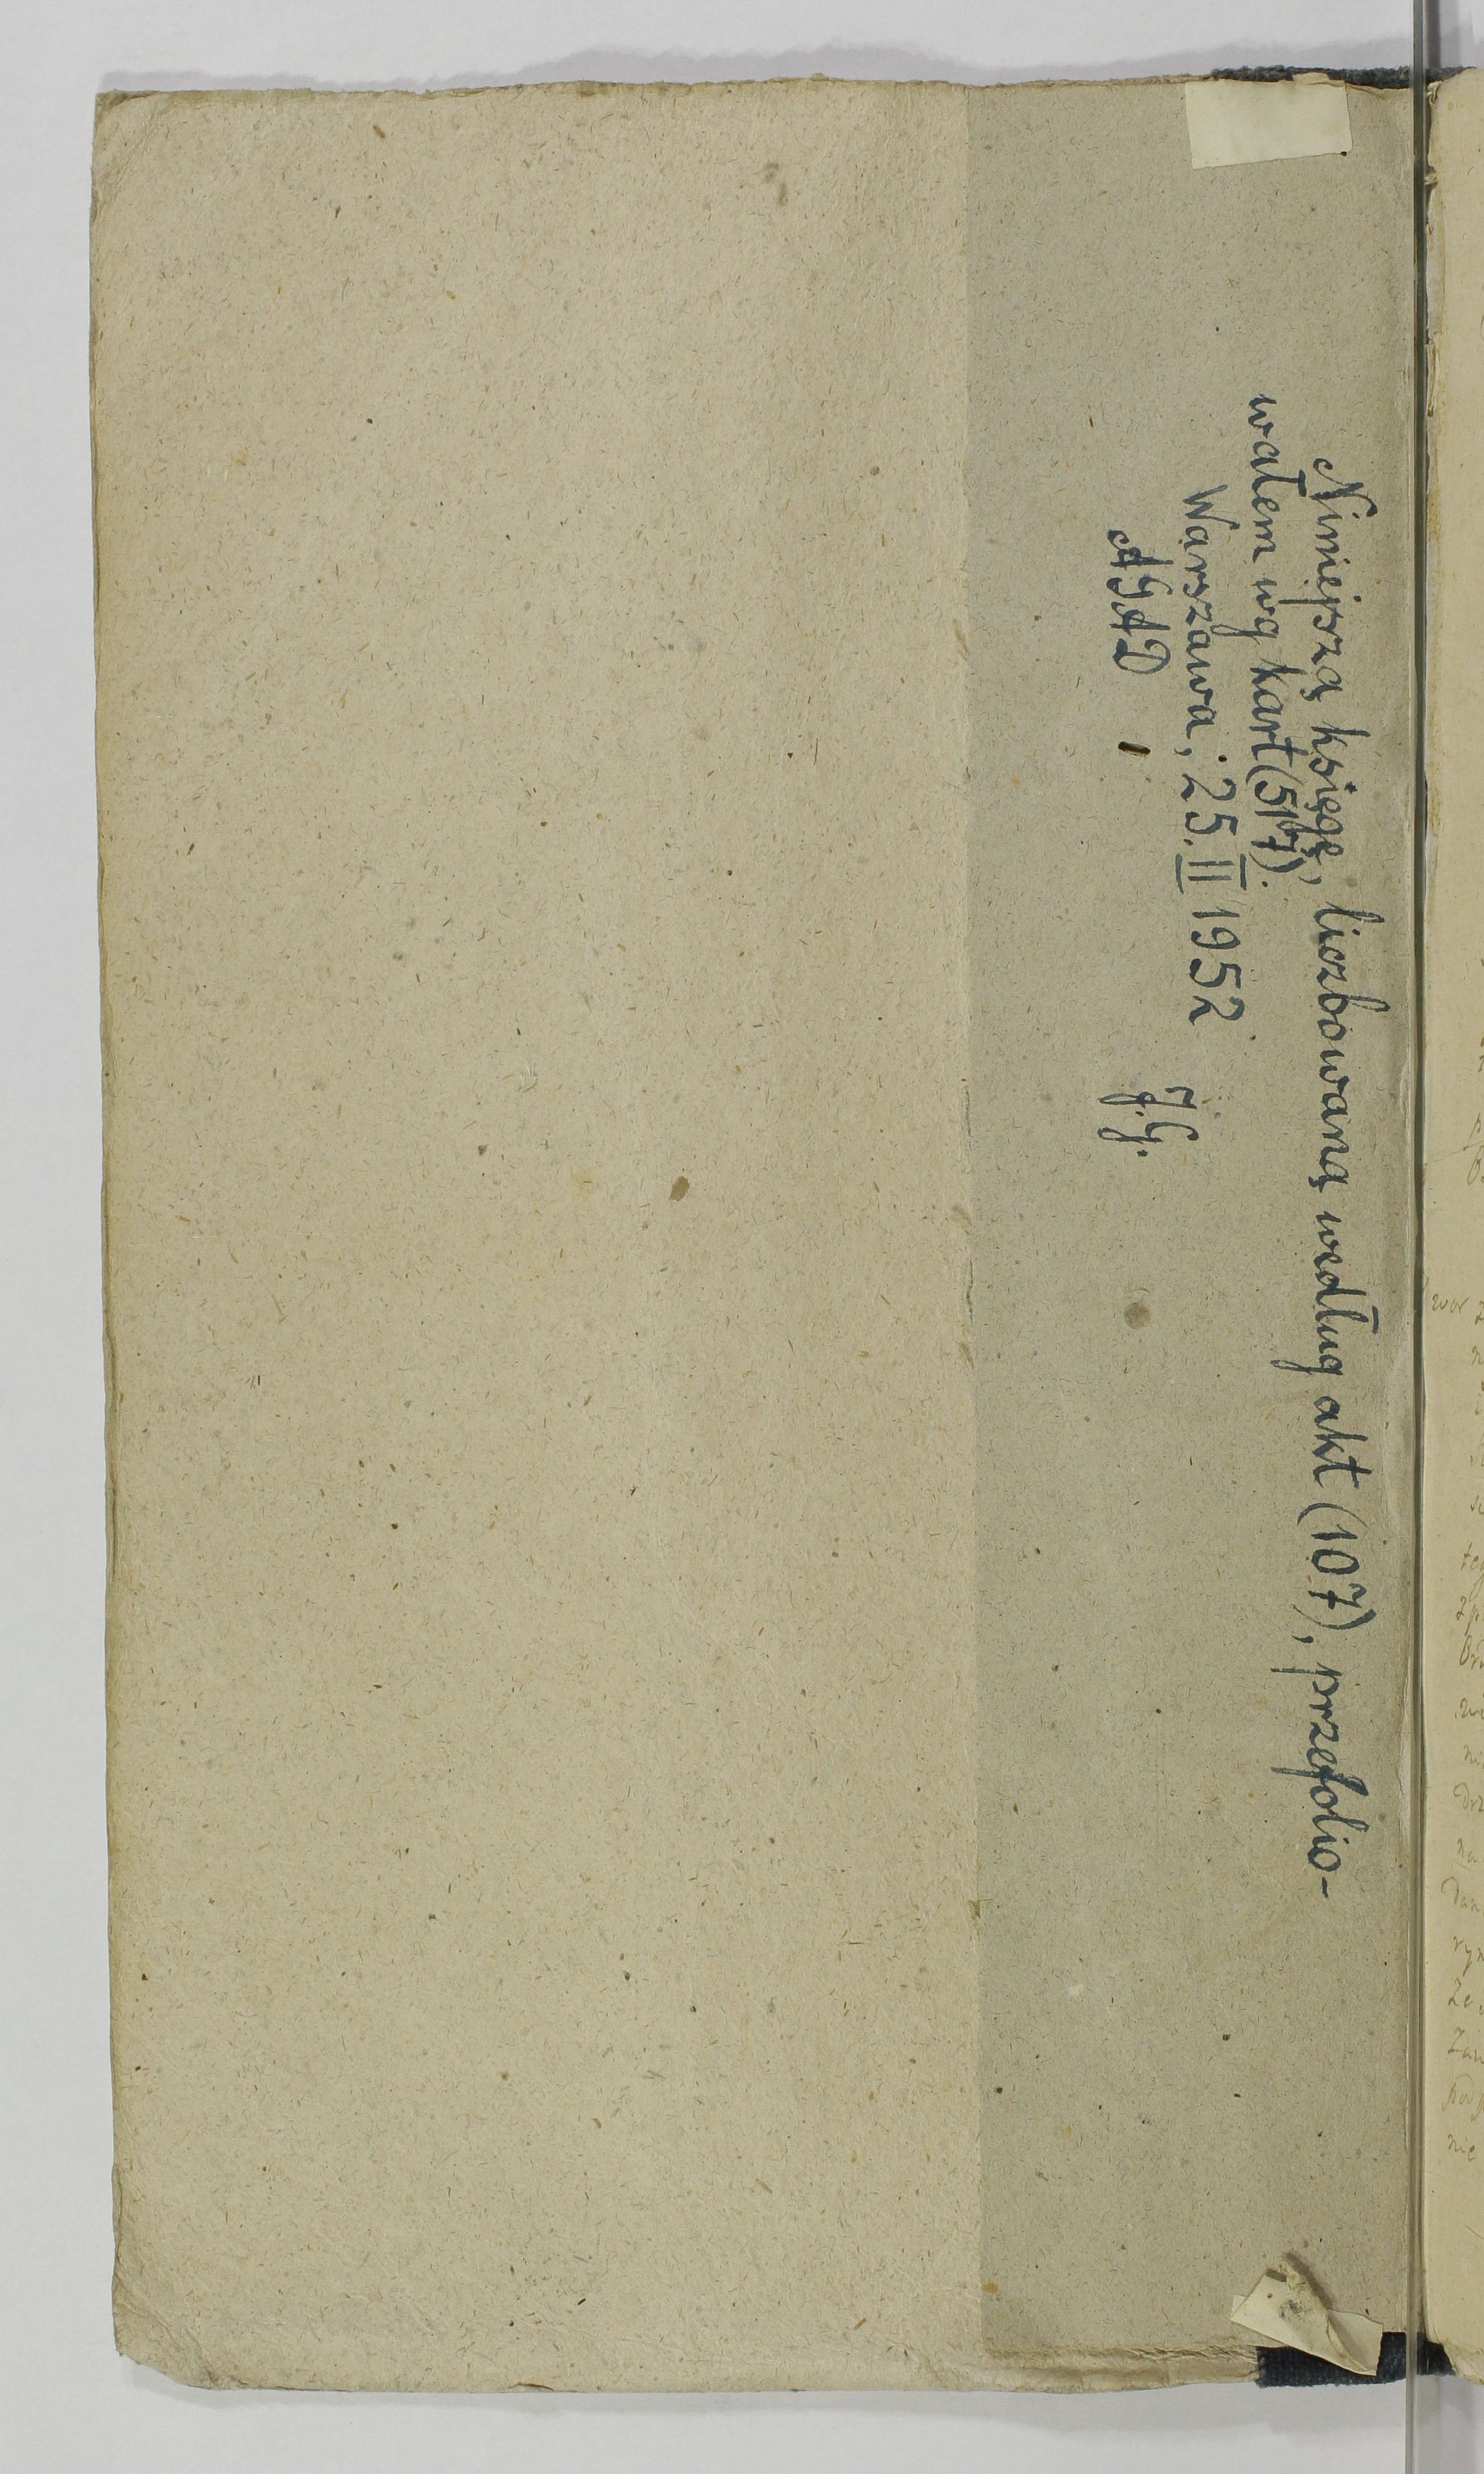 Niniejszą księgę, liczbowaną według akt (107), przefolio-
wałem wg kart (517).
Warszawa, 25. II 1952
AGAD J.G.